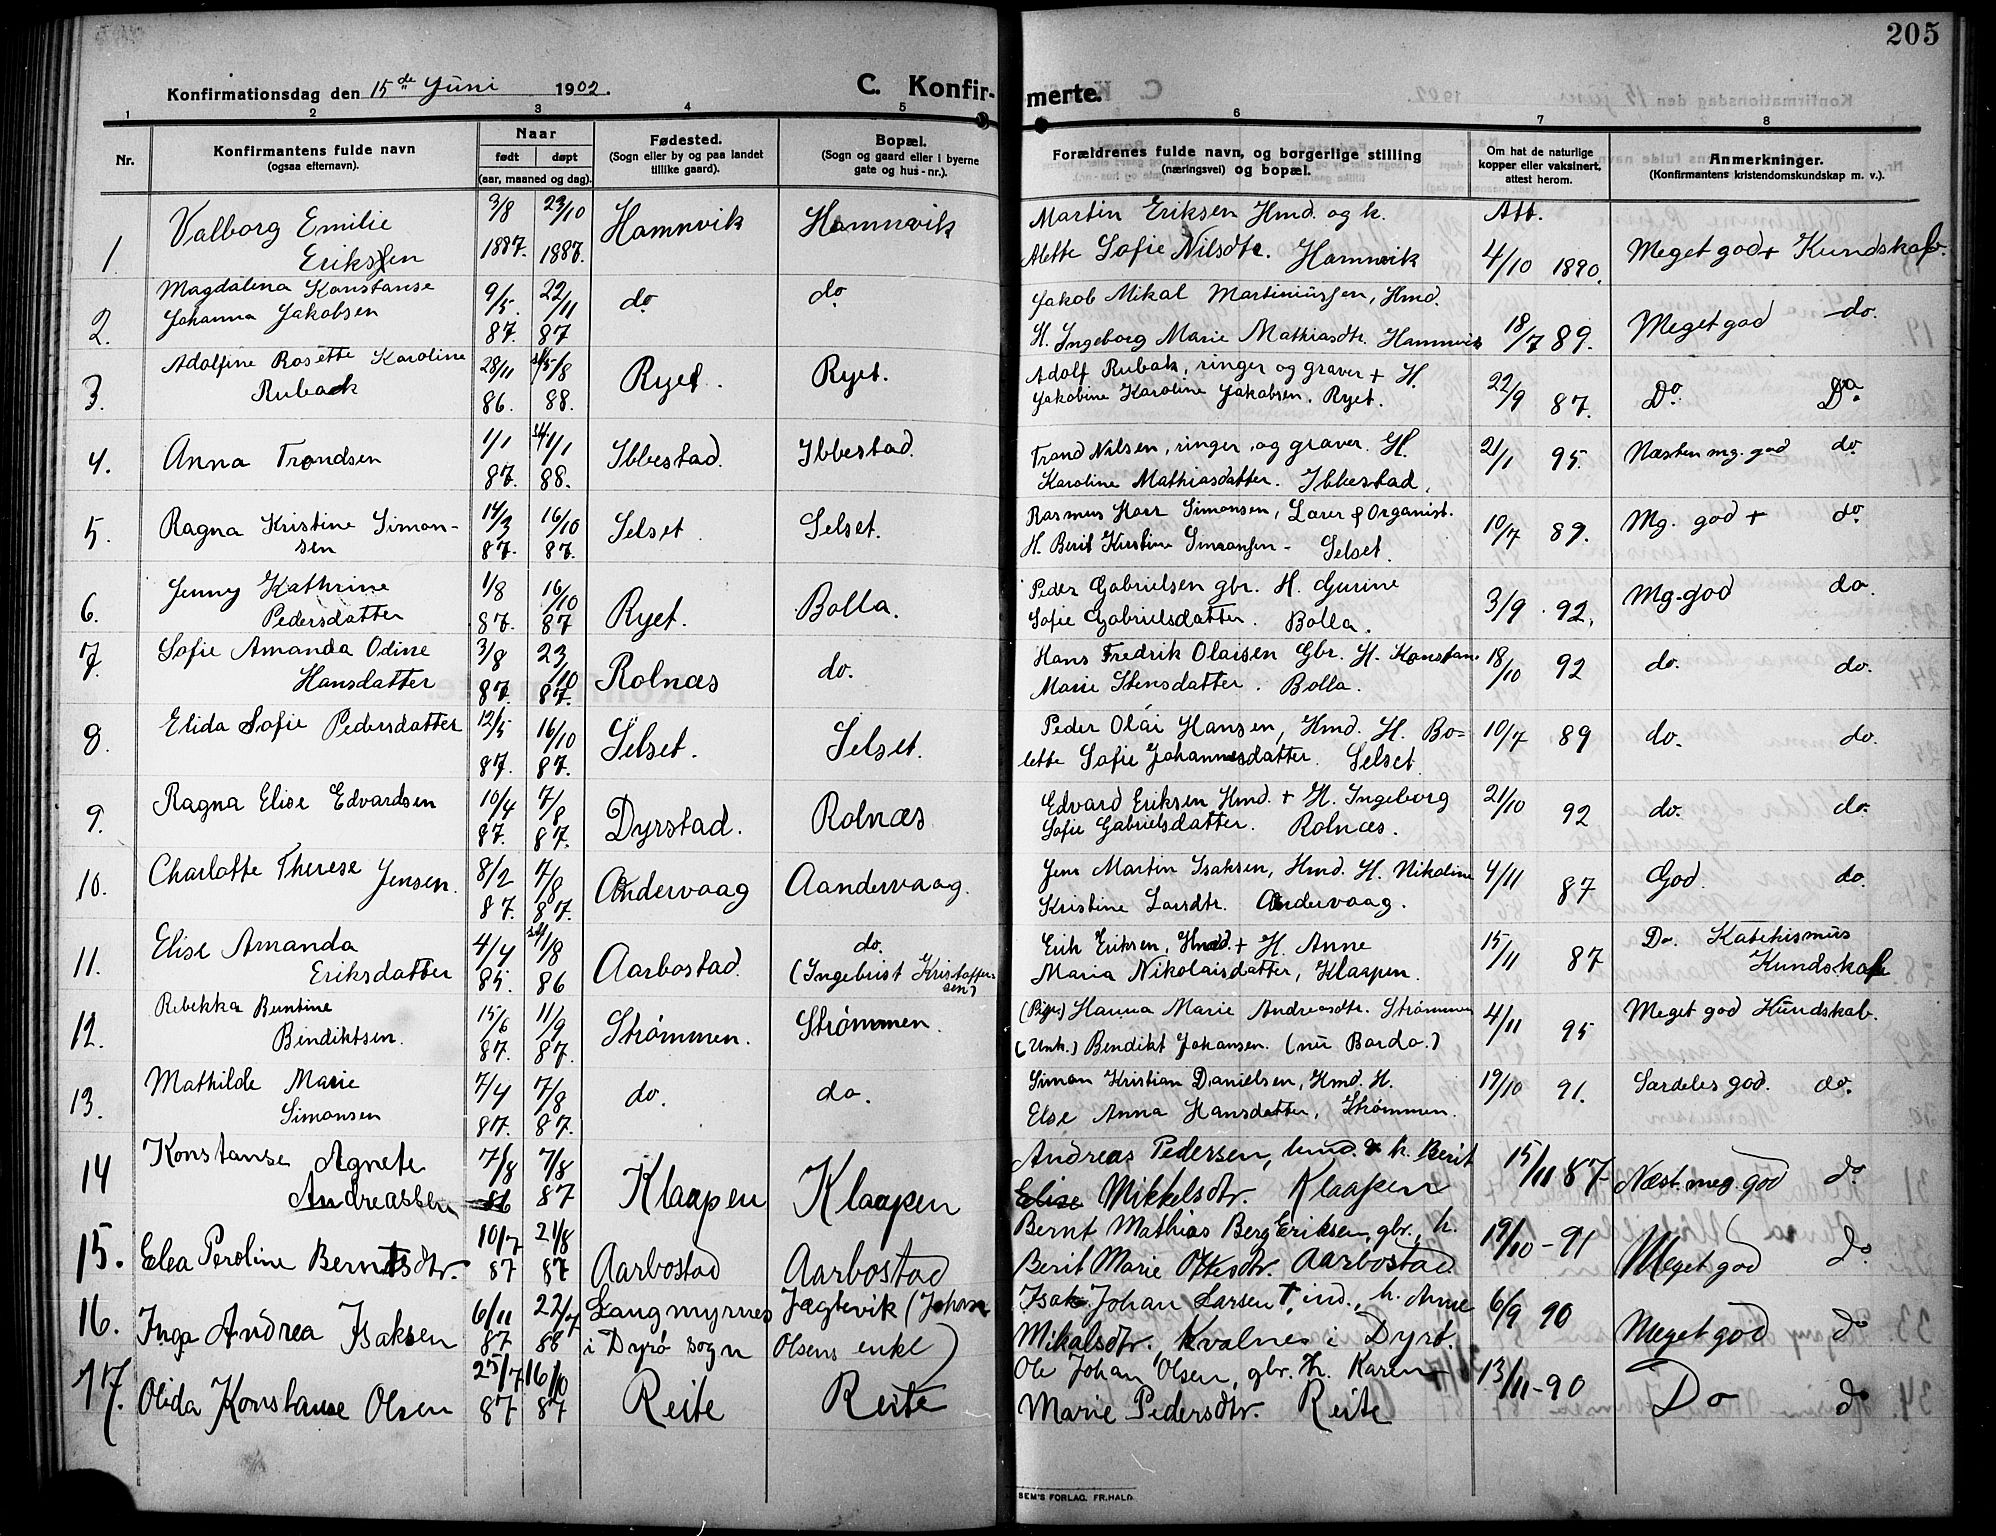 205
Konfirmationsdag den 15de Juni 1902.
C. Konfirmerte.
1 2 3 4 5 6 7 8
Nr.
Konfirmantens fulde navn
(ogsaa efternavn).
Naar
født døpt
(aar, maaned og dag).
Fødested.
(Sogn eller by og paa landet
tillike gaard).
Bopæl.
(Sogn og gaard eller i byerne
gate og hus-nr.).
Forældrenes fulde navn, og borgerlige stilling
(næringsvei) og bopæl.
Om hat de naturlige
kopper eller vaksinert,
attest herom.
Anmerkninger.
(Konfirmantens kristendomskundskap m. v.).
Valborg Emilie 3/8 23/10 Hamnvik Hamnvik Martin Eriksen Hmd. og h. Att.
1 Eriksen 1887. 1887. Alette Sofie Nilsdtr. Hamnvik 4/10 1890. Meget god + Kundskab.
Magdalena Konstanse 9/5. 22/11 do. do. Jakob Mikal Martiniussen, Hmd.
2. Johanna Jakobsen 87. 87 H. Ingeborg Marie Mathiasdtr. Hamnvik 18/7 89. Meget god do.
Adolfine Rosette Karoline 28/11 5/8 Ryet. Ryet. Adolf Rubak, ringer og graver + H.
3. Ruback 86. 88. Jakobine Karoline Jakobsen. Ryet. 22/9 87. Do. Do
4. Anna Trondsen 1/1 1/1 Ibbestad. Ibbestad. Trond Nilsen, ringer og graver. H. 21/1 95. Næsten mg. god do.
87. 88. Karoline Mathiasdatter. Ibbestad.
5. Ragna Kristine Simon- 14/3 16/10 Selset. Selset. Rasmus Simonsen, Lærer & Organist. 10/7 89. Mg. god + do.
sen 87. 87. H. Berit Kirstine Simonsen - Selset.
Jenny Kathrine 1/8 16/10 Ryet. Bolla. Peder Gabrielsen gbr. H. Gurine 3/9. 92. Mg. god do.
6. Pedersdatter 87. 87 Sofie Gabrielsdatter. Bolla.
7. Sofie Amanda Odine 3/8 23/10 Rolnæs do. Hans Fredrik Olaisen Gbr. H. Konstan. 18/10 92 do. do.
Hansdatter 87. 87. Marie Stensdatter. Bolla.
8. Elida Sofie Pedersdatter 12/5 16/10 Selset. Selset. Peder Olai Hansen, Hmd. H. Bo= 10/7 89 do. do.
87. 87. lette Sofie Johannesdatter. Selset
9. Ragna Elise Edvardsen 10/4 7/8 Dyrstad. Rolnæs Edvard Eriksen Hmd. + H. Ingeborg 21/10 92 do. do.
87. 87. Sofie Gabrielsdatter. Rolnæs.
10. Charlotte Therese Jensen. 8/2 7/8 Aandervaag Aandervaag. Jens Martin Isaksen, Hmd. H. Nikoline 4/11 87 God. do.
87. 87. Kristine Larsdtr. Aandervaag.
Elise Amanda 4/4 1/8 Aarbostad. do. Erik Eriksen, Hmd. + H. Anne 15/11 87 Do. Katekismus
11. Eriksdatter 85. 86 (Ingebrist Kristoffer- Maria Nikolaisdatter, Klaapen. Kundskab
sen)
Rebekka Berntine 15/6 11/9 Strømmen. Strømmen. (Pige) Hanna Marie Andreasdtr. Strømmen 4/11 95 Meget god Kundskab.
12. Bendiktsen. 87. 87. (Unk.) Bendikt Johansen. (nu Bardo.)
Mathilde Marie 7/4 7/8 do. do. Simon Kristian Danielsen, Hmd. H. 19/10 91. Særdeles god. do.
13. Simonsen 87. 87. Else Anna Hansdatter, Strømmen.
14 Konstanse Agnete 7/8 7/8 Klaapen Klaapen Andreas Pedersen, hmd. & h. Berit 15/11 87- Næst. meg. god do
Andreassen 86 87 Elise Mikkelsdtr. Klaapen
15. Elea Peroline Berntsdtr. 10/7 21/8 Aarbostad Aarbostad Bernt Mathias Berg Eriksen, gbr., h. 19/10 - 91 Meget god do
87 87 Berit Marie Ottesdtr. Aarbostad.
16. Inga Andrea Isaksen 6/11 22/7 Langmyrnes Jægtevik (Johan Isak Johan Larsen †, ind., h. Anne 6/9 90 Meget god do
87 88 i Dyrø sogn Olsens enke) Mikalsdtr. Kvalnes i Dyrø.
17. Olida Konstanse Olsen 25/7 16/10 Reite Reite Ole Johan Olsen, gbr. h. Karen 13/11-90 Do do
87 87 Marie Pedersdtr. Reite
SEM'S FORLAG. FR.HALD.